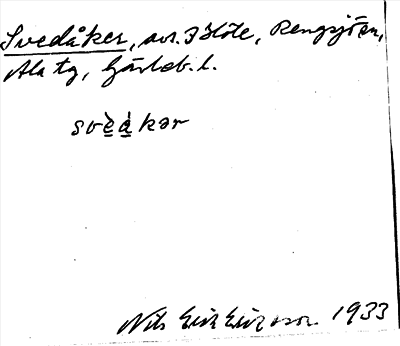 Svedåker, avs. Flöte, Rengsjö sn,
Ala tg, Gävleb. l.
svè̠å̠kər
Nils Erik Eriksson. 1933